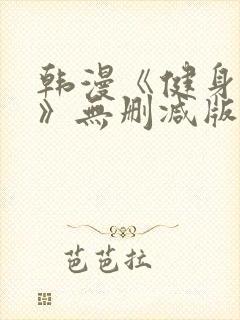 韩漫《健身
》無删减版
芭芭拉